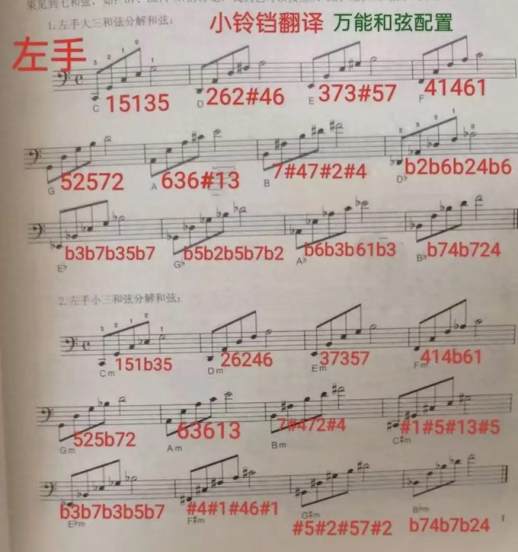 小铃铛翻译 万能和弦配置
1.左手大三和弦分解和弦:
左手
C 15135 D 262#46 E 373#57 F 41461
G 52572 A 636#13 B 7#47#2#4 D♭ b2b6b24b6
E♭ b3b7b35b7 G♭ b5b2b5b7b2 A♭ b6b3b61b3 B♭ b74b724
2.左手小三和弦分解和弦:
Cm 151b35 Dm 26246 Em 37357 Fm 414b61
Gm 525b72 Am 63613 Bm 7#472#4 C#m #1#5#13#5
E♭m b3b7b3b5b7 F#m #4#1#46#1 G#m #5#2#57#2 B♭m b74b7b24